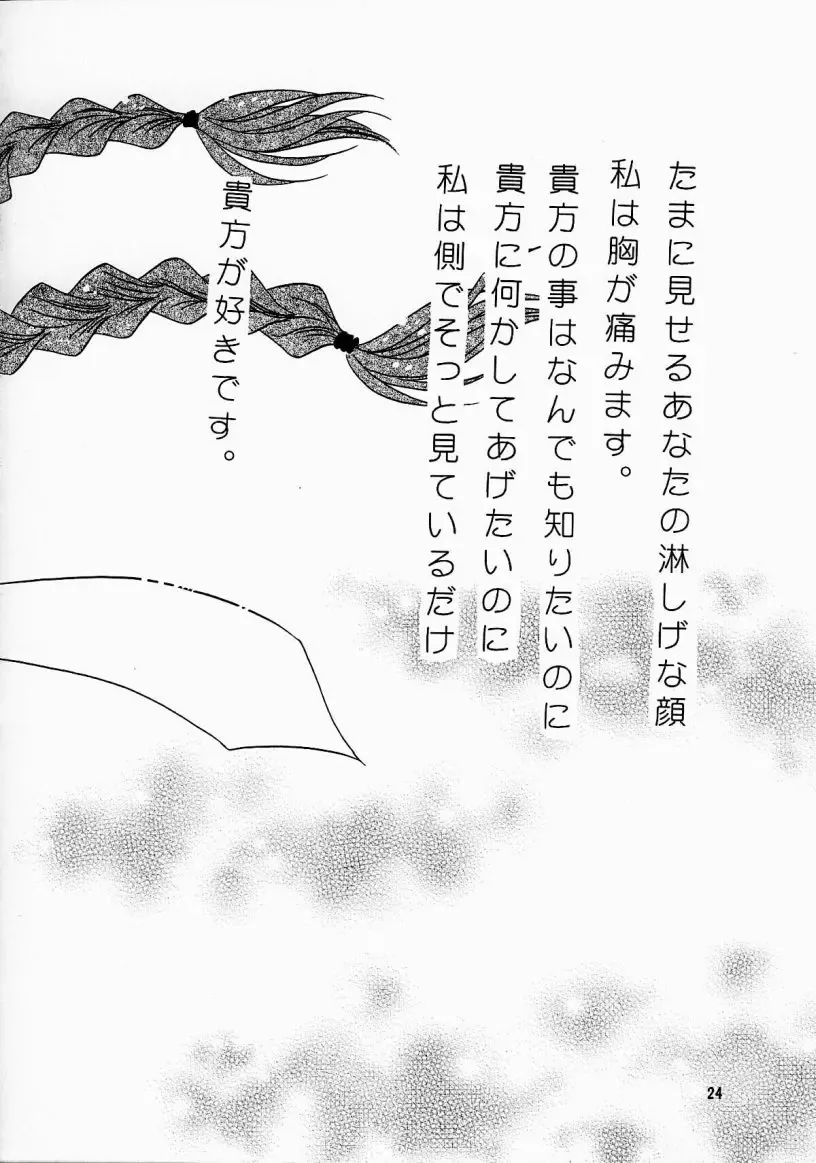 たまに見せるあなたの淋しげな顔
私は胸が痛みます。
貴方の事はなんでも知りたいのに
貴方に何かしてあげたいのに
私は側でそっと見ているだけ
貴方が好きです。
24